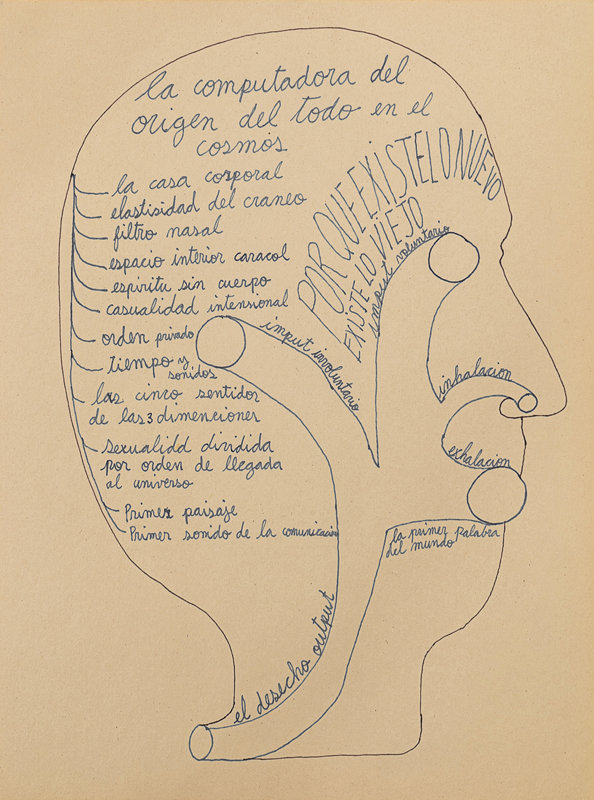 la computadora del
origen del todo en el
cosmos
la casa corporal
elastisidad del craneo
filtro nasal
espacio interior caracol
espiritu sin cuerpo
casualidad intensional
orden privado
tiempo y
sonidos
las cinco sentidor
de las 3 dimenciones
sexualidd dividida
por orden de llegada
al universo
Primer paisaje
Primer sonido de la comunicación
PORQUE EXISTE LO NUEVO
EXISTE LO VIEJO
imput voluntario
imput involuntario
inhalacion
exhalacion
la primer palabra
del mundo
el desecho output